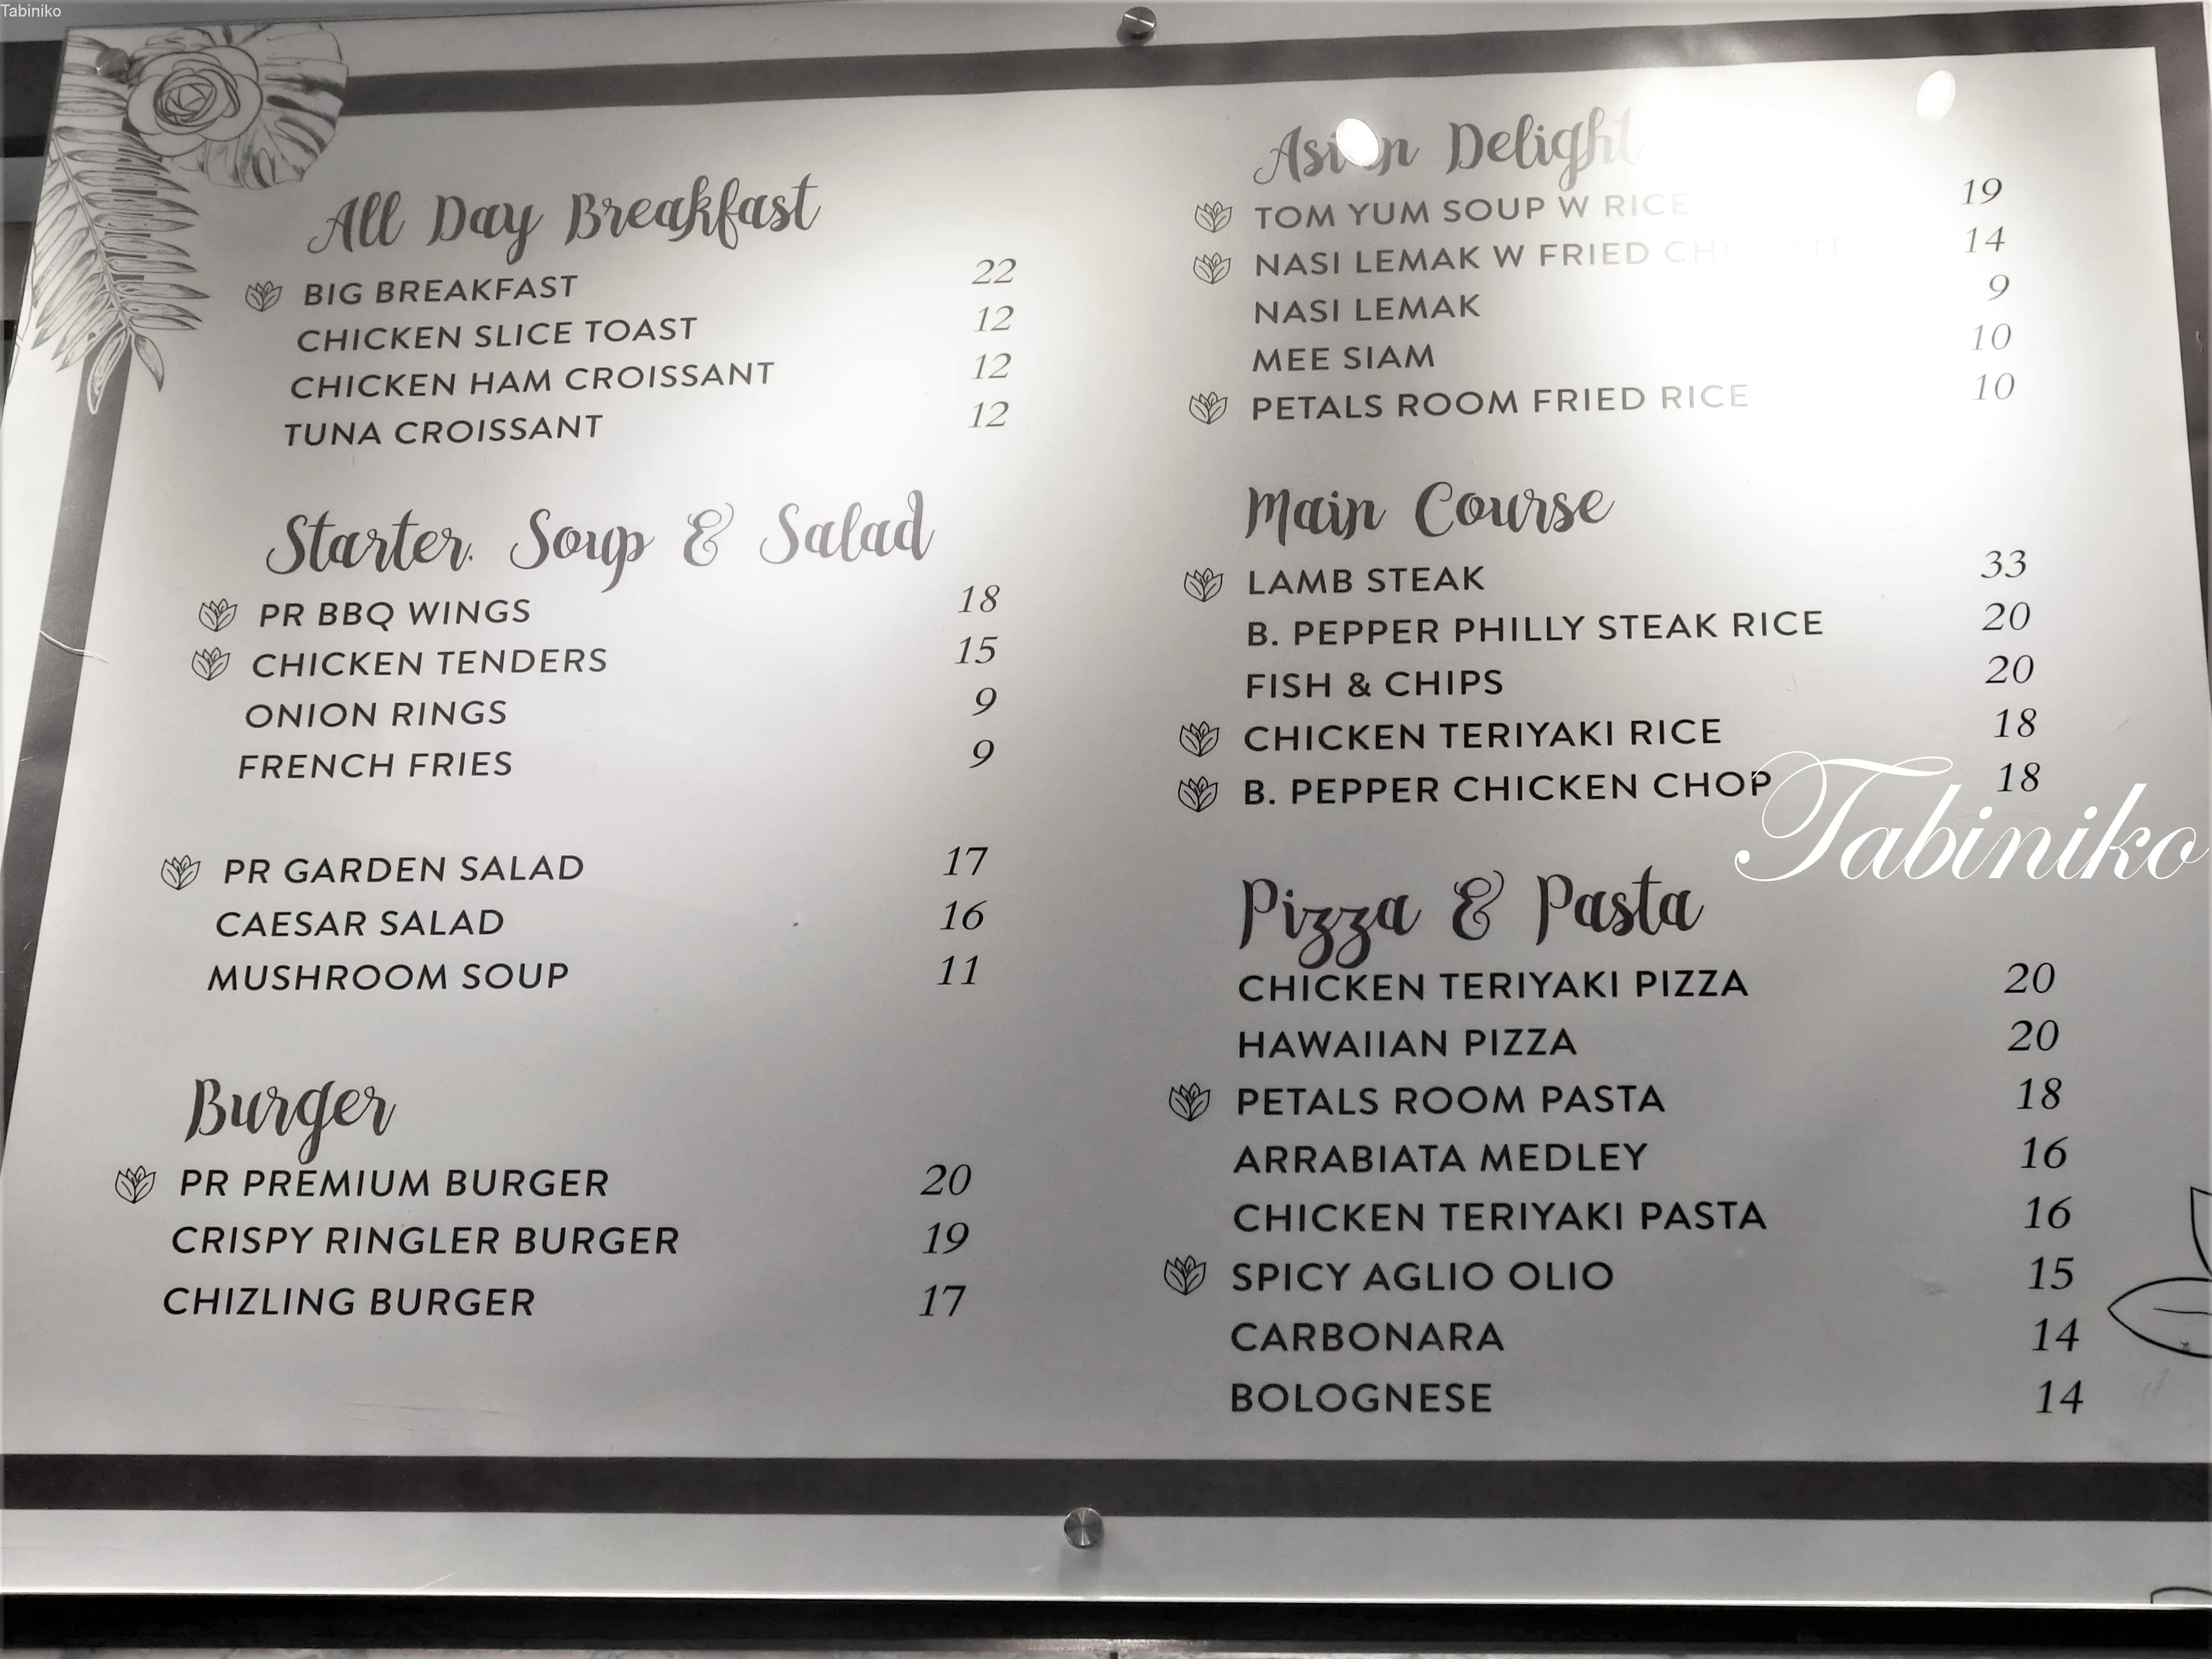 Tabiniko
All Day Breakfast
BIG BREAKFAST 22
CHICKEN SLICE TOAST 12
CHICKEN HAM CROISSANT 12
TUNA CROISSANT 12
Starter, Soup & Salad
PR BBQ WINGS 18
CHICKEN TENDERS 15
ONION RINGS 9
FRENCH FRIES 9
PR GARDEN SALAD 17
CAESAR SALAD 16
MUSHROOM SOUP 11
Burger
PR PREMIUM BURGER 20
CRISPY RINGLER BURGER 19
CHIZLING BURGER 17
Asian Delight
TOM YUM SOUP W RICE 19
NASI LEMAK W FRIED CHICKEN 14
NASI LEMAK 9
MEE SIAM 10
PETALS ROOM FRIED RICE 10
Main Course
LAMB STEAK 33
B. PEPPER PHILLY STEAK RICE 20
FISH & CHIPS 20
CHICKEN TERIYAKI RICE 18
B. PEPPER CHICKEN CHOP 18
Tabiniko
Pizza & Pasta
CHICKEN TERIYAKI PIZZA 20
HAWAIIAN PIZZA 20
PETALS ROOM PASTA 18
ARRABIATA MEDLEY 16
CHICKEN TERIYAKI PASTA 16
SPICY AGLIO OLIO 15
CARBONARA 14
BOLOGNESE 14